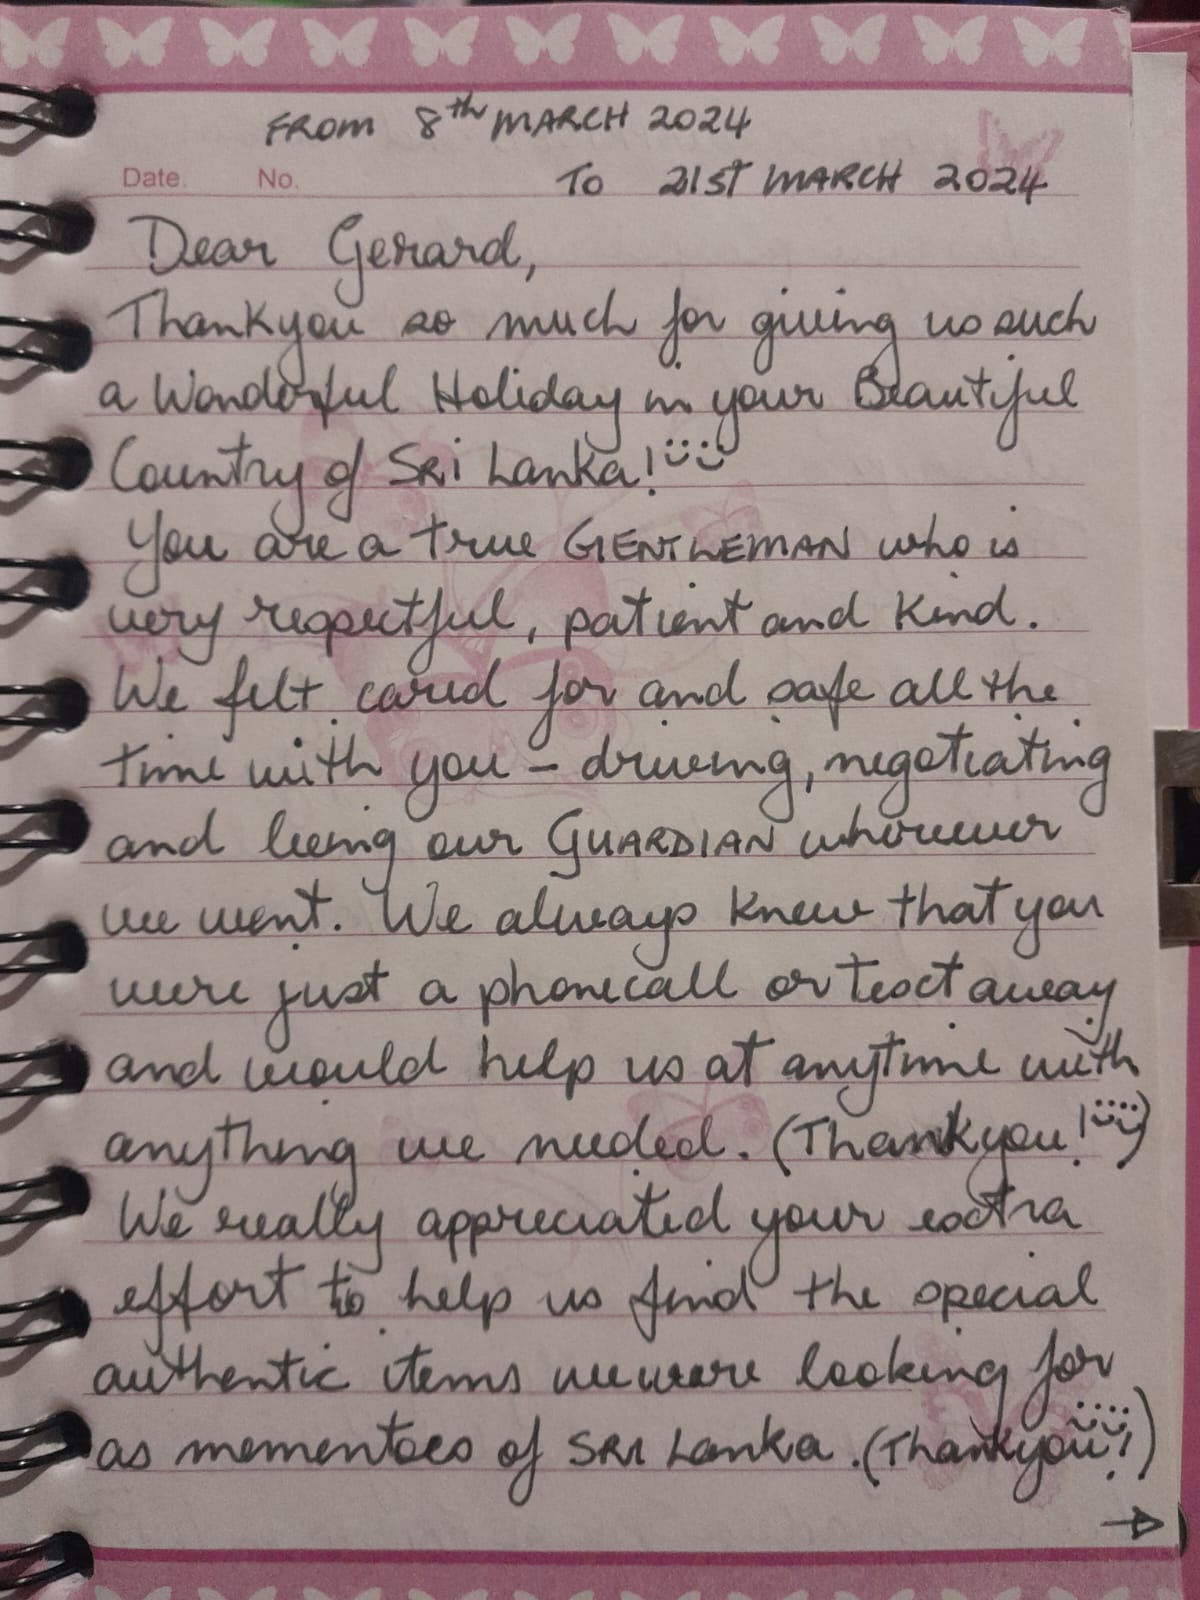 FROM 8th MARCH 2024
Date. No. TO 21ST MARCH 2024
Dear Gerard,
Thankyou so much for giving us such
a Wonderful Holiday in your Beautiful
Country of SRi Lanka!
You are a true GENTLEMAN who is
very respectful, patient and Kind.
We felt cared for and safe all the
time with you - driving, negotiating
and being our GUARDIAN wherever
we went. We always knew that you
were just a phonecall or text away
and would help us at anytime with
anything we needed. (Thankyou!)
We really appreciated your extra
effort to help us find the special
authentic items we were looking for
as mementoes of SRi Lanka. (Thankyou!)
→